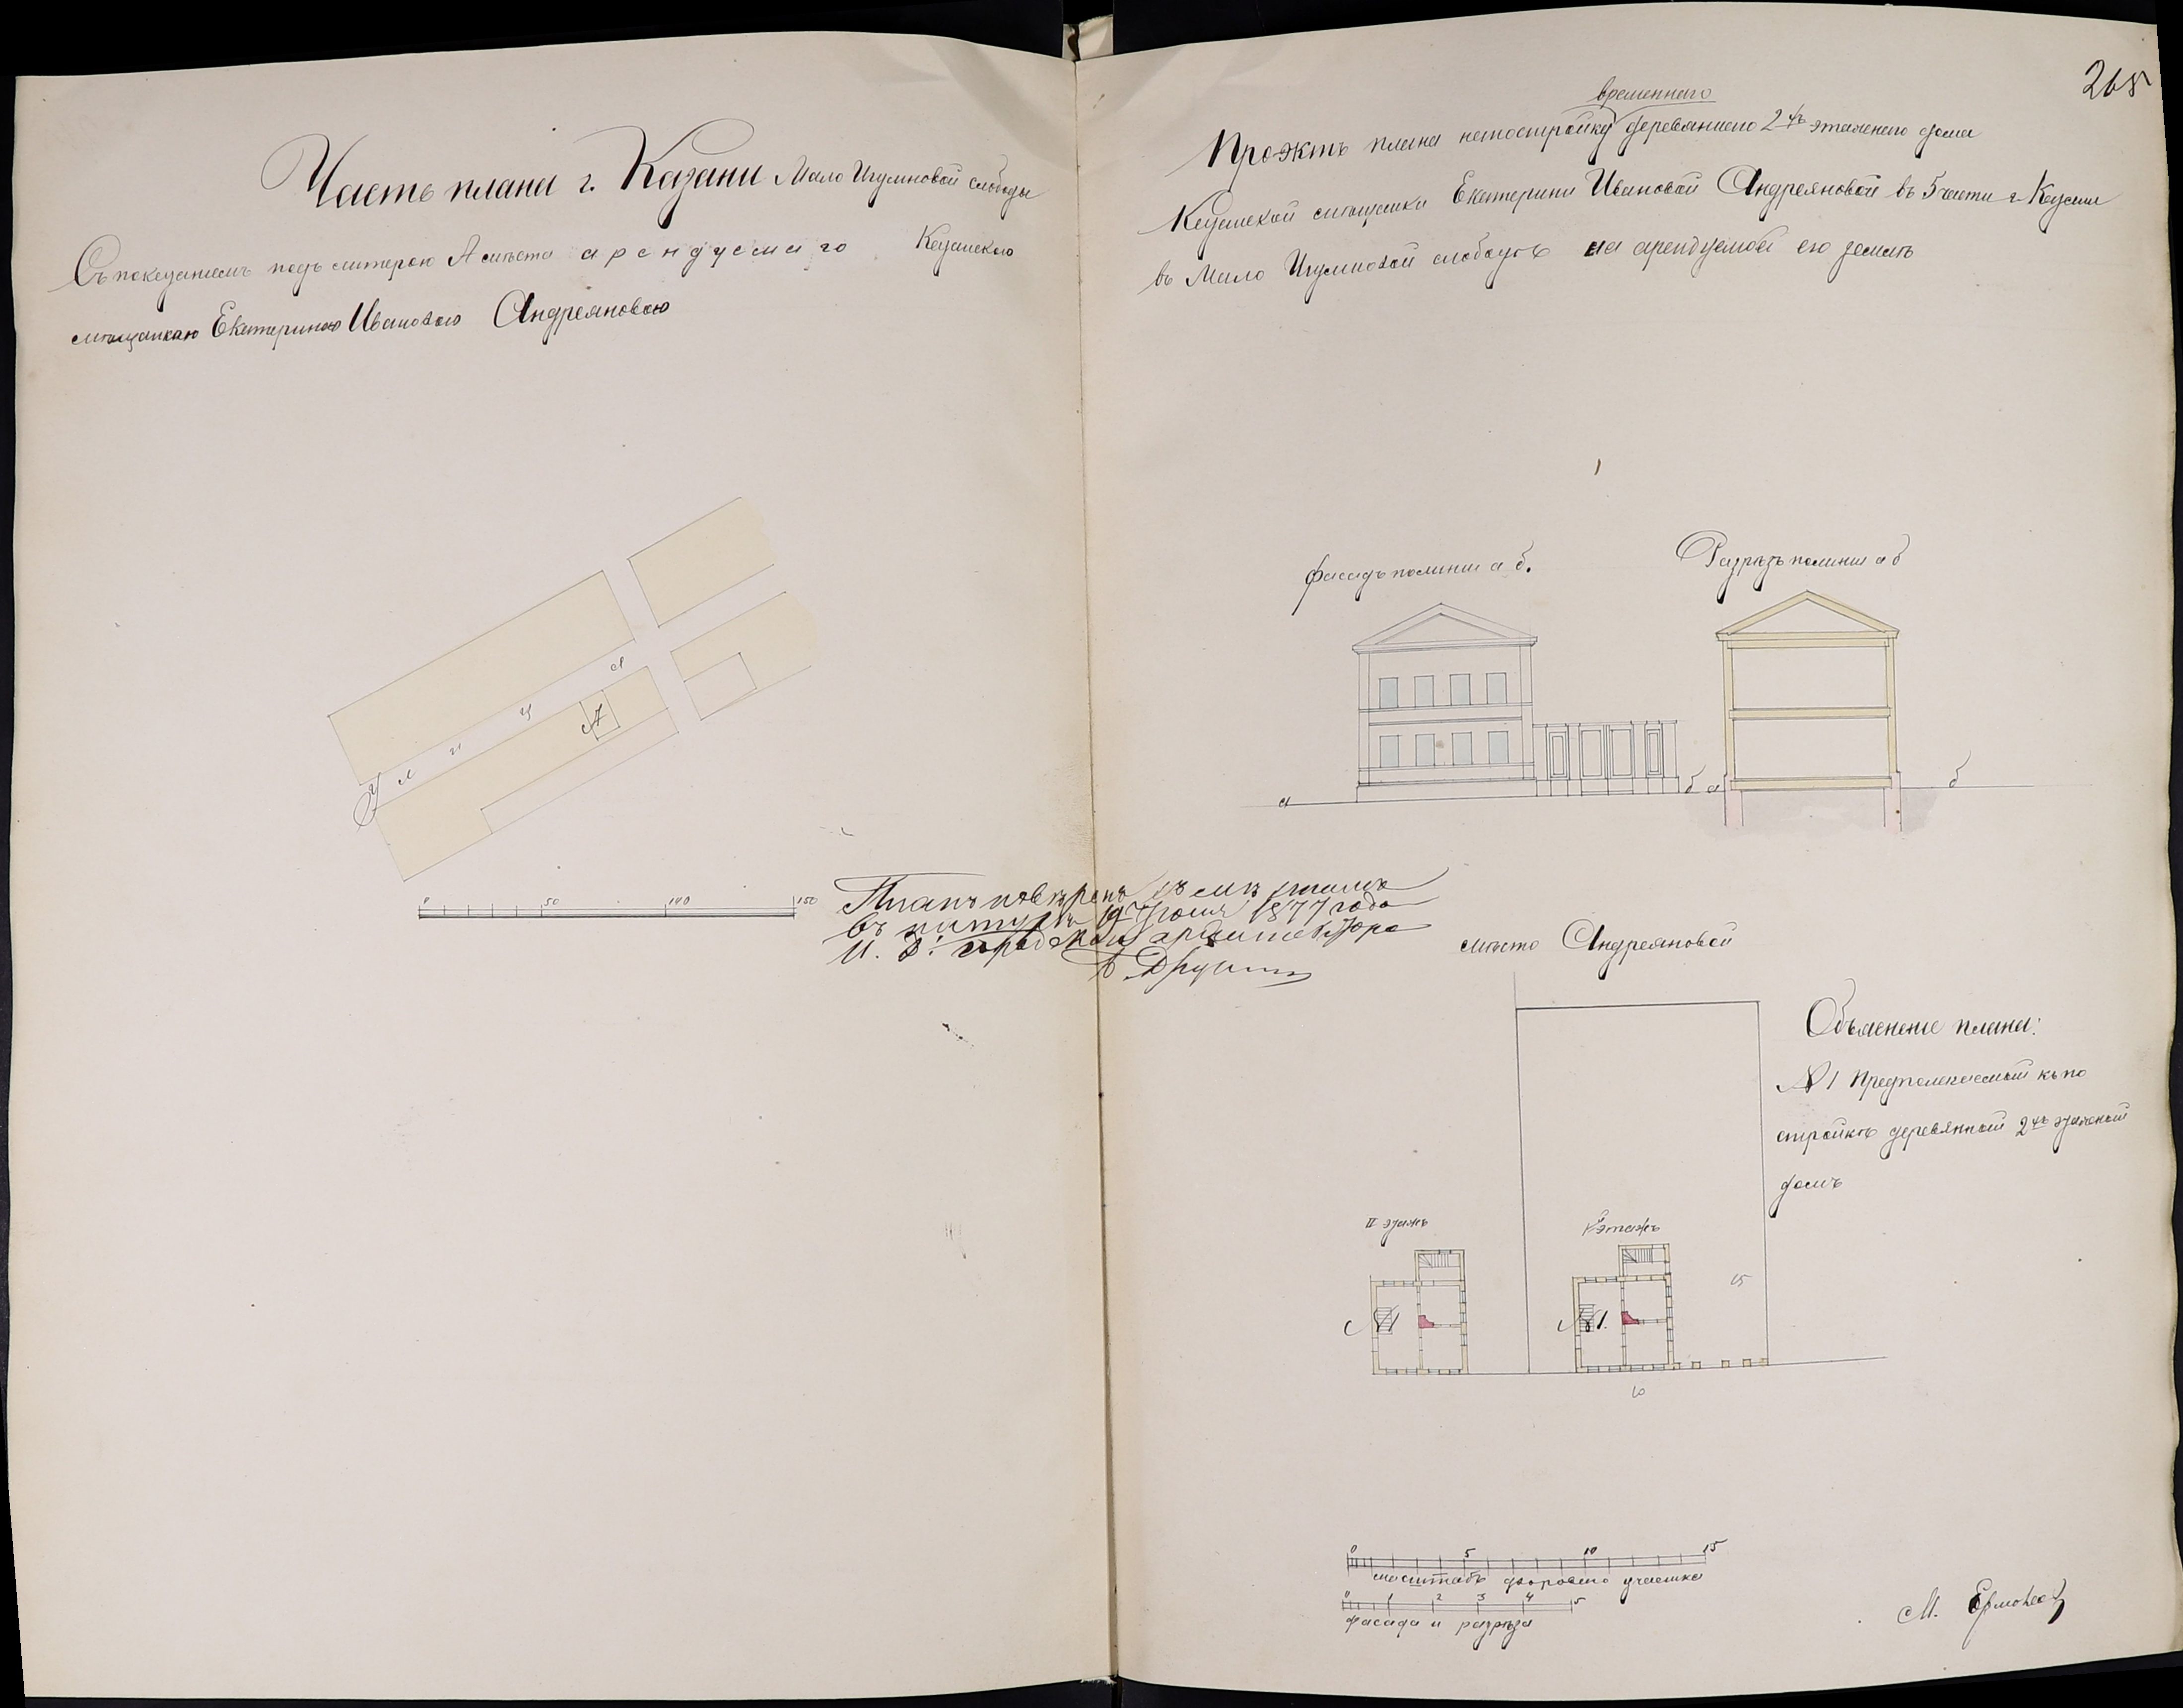 Часть плана г. Казани Мало Игумновой слободы
Съ показаниемъ подъ литерою А места арендуемаго Казанскою
мѣщанкою Екатериною Ивановою Андреяновою
У л и ц а
А
0 50 100 150
Планъ повѣренъ съ мѣстомъ
въ натурѣ 19 Июня 1877 года
И. д. городскаго архитектора
265
временнаго
Проэктъ плана на постройку деревяннаго 2хъ этажнаго дома
Казанской мѣщанки Екатерини Ивановой Андреяновой въ 5 части г. Казани
въ Мало Игумновой слободѣ на арендуемой ею землѣ
Фасадъ по линии а б.
Разрѣзъ по линии а б
а б а б
мѣсто Андреяновой
Объяснение плана:
№ 1 Предполагаемый къ по
стройкѣ деревянный 2хъ этажный
домъ
II этажъ
I этажъ
15
№ 1
№ 1.
10
0 5 10 15
масштабъ дворового участка
0 1 2 3 4 5
фасада и разрѣза
М. Ермолаев